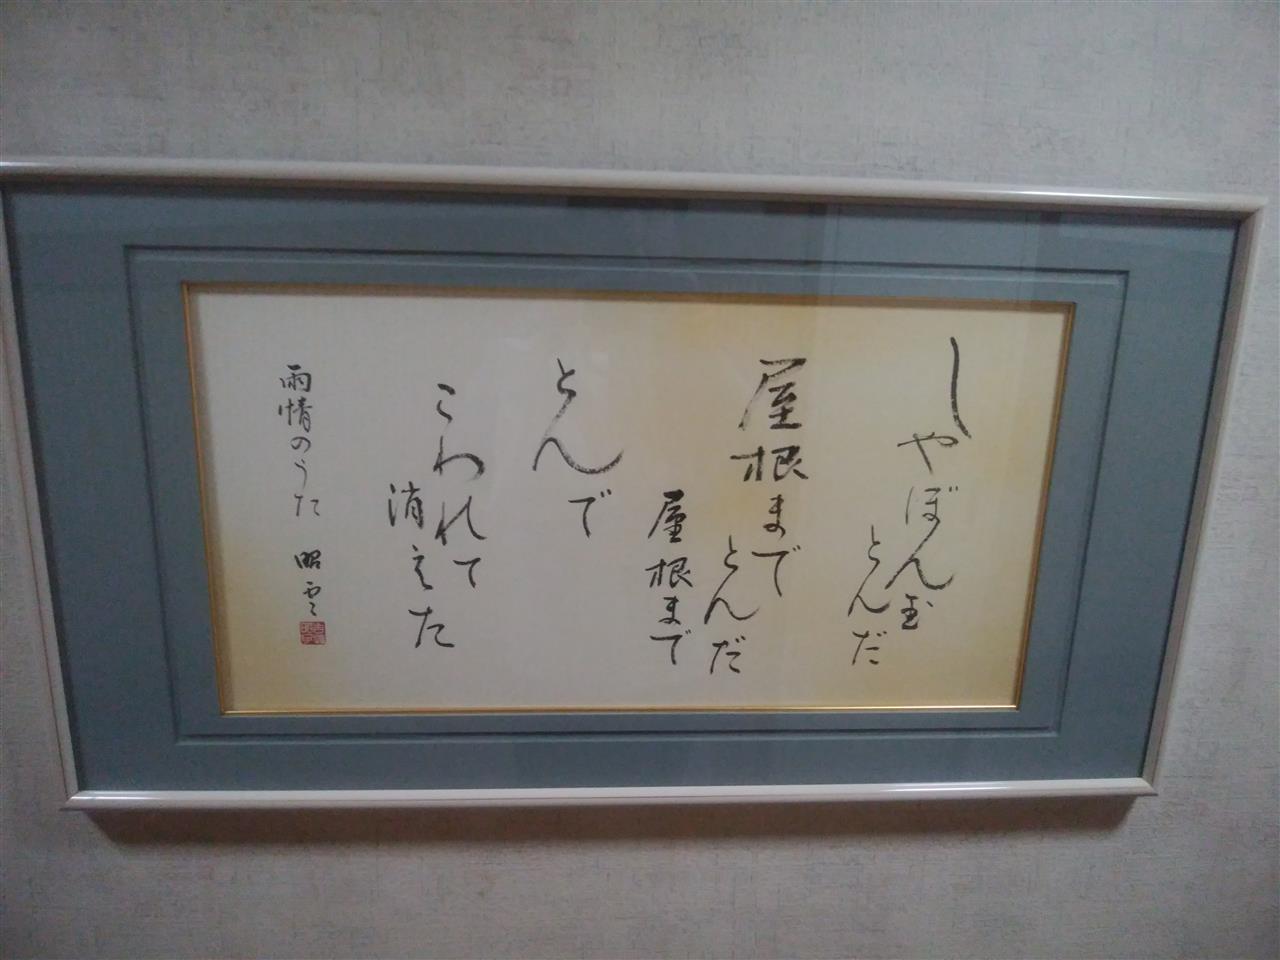 しゃぼん玉
とんだ
屋根まで
とんだ
屋根まで
とんで
こわれて
消えた
雨情のうた 昭雲